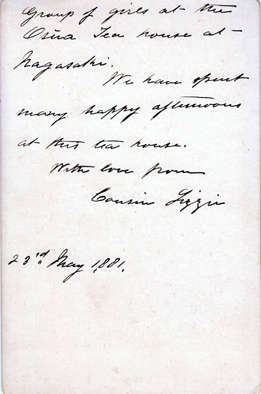 Group of girls at the
Osūa Tea house at
Nagasaki.
We have spent
many happy afternoons
at this tea house.
With love from
Cousin Lizzie
23rd May 1881.